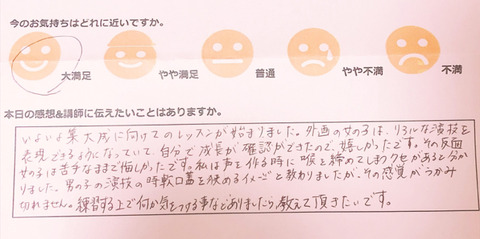 今のお気持ちはどれに近いですか。
大満足 やや満足 普通 やや不満 不満
本日の感想&講師に伝えたいことはありますか。
いよいよ集大成に向けてのレッスンが始まりました。外画の女の子は、リアルな演技を
表現できるようになっていて自分で成長が確認ができたので、嬉しかったです。その反面
女の子は苦手なままで悔しかったです。私は声を作る時に喉を締めてしまうクセがあると分か
りました。男の子の演技の時軟口蓋を狭めるイメージと教わりましたが、その感覚がつかみ
切れません。練習する上で何か気をつける事などありましたら、教えて頂きたいです。